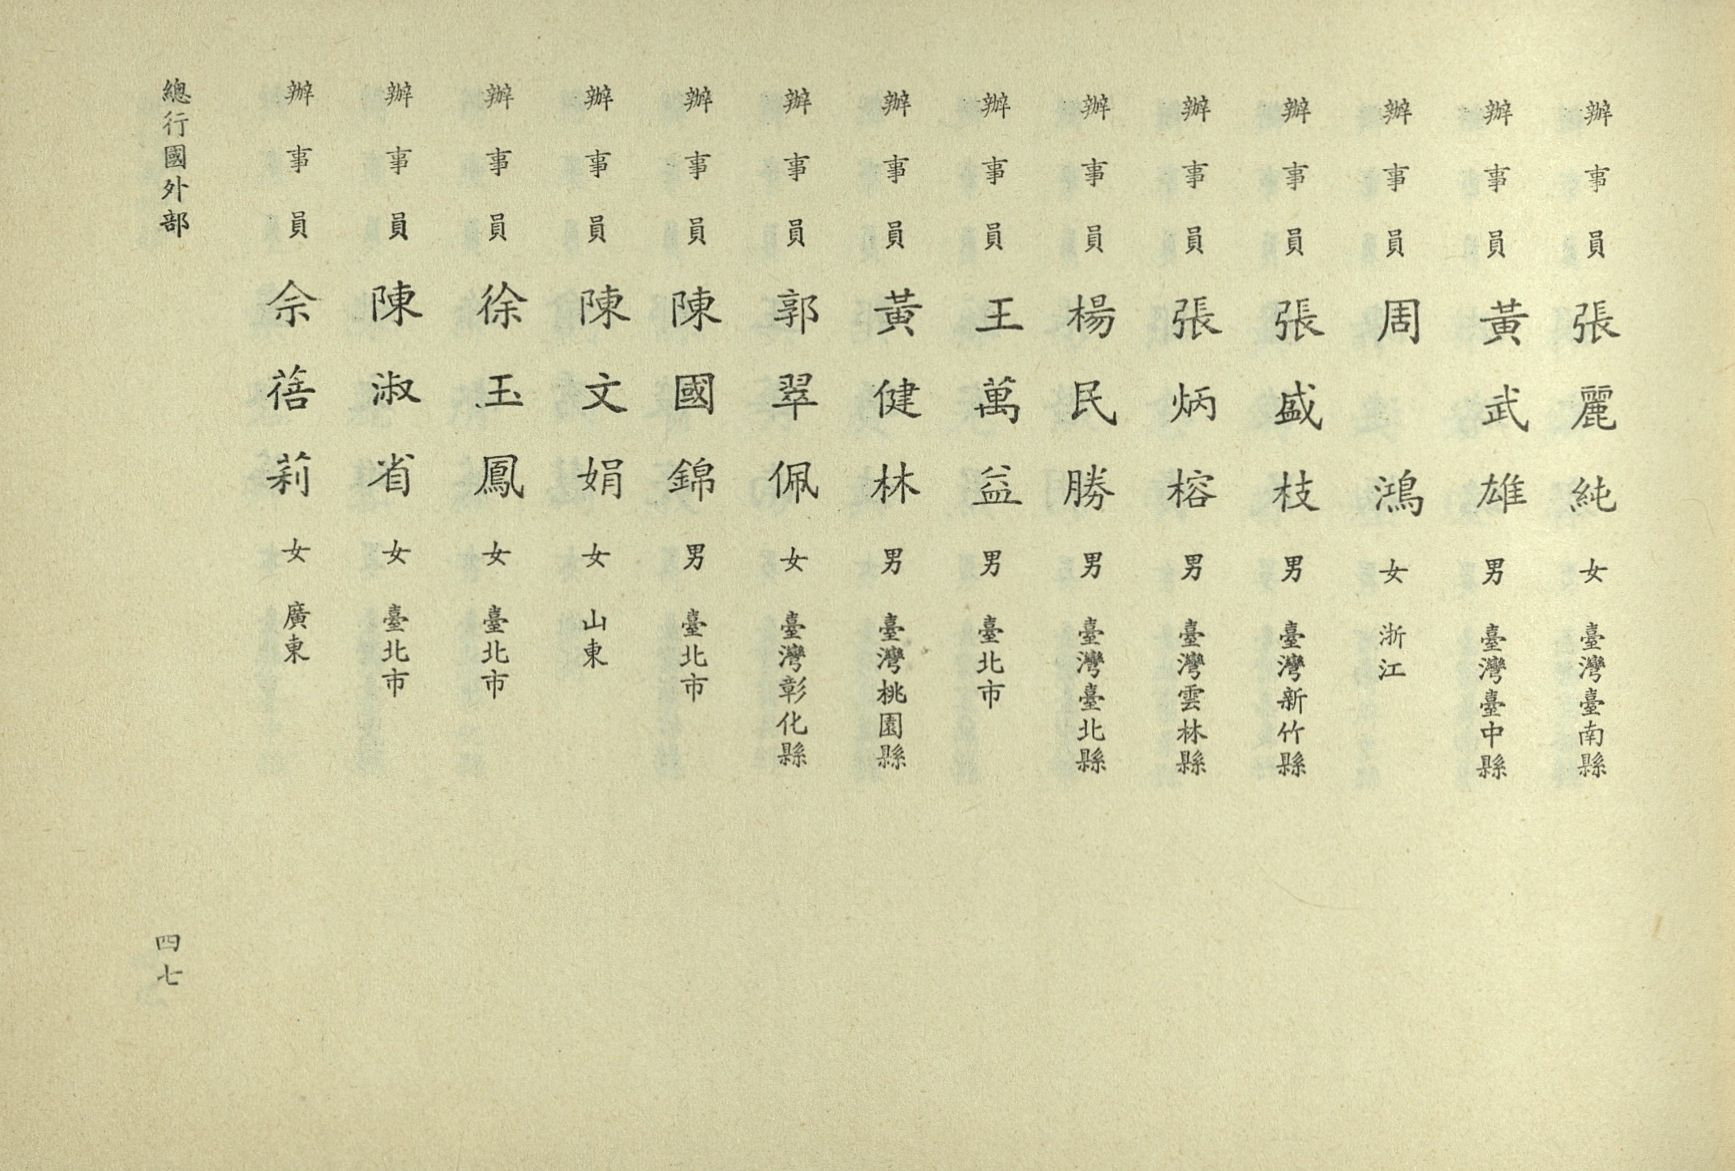 辦事員 張麗純 女 臺灣臺南縣
辦事員 黃武雄 男 臺灣臺中縣
辦事員 周鴻 女 浙江
辦事員 張盛枝 男 臺灣新竹縣
辦事員 張炳榕 男 臺灣雲林縣
辦事員 楊民勝 男 臺灣臺北縣
辦事員 王萬益 男 臺北市
辦事員 黃健林 男 臺灣桃園縣
辦事員 郭翠佩 女 臺灣彰化縣
辦事員 陳國錦 男 臺北市
辦事員 陳文娟 女 山東
辦事員 徐玉鳳 女 臺北市
辦事員 陳淑省 女 臺北市
辦事員 佘蓓莉 女 廣東
總行國外部
四七